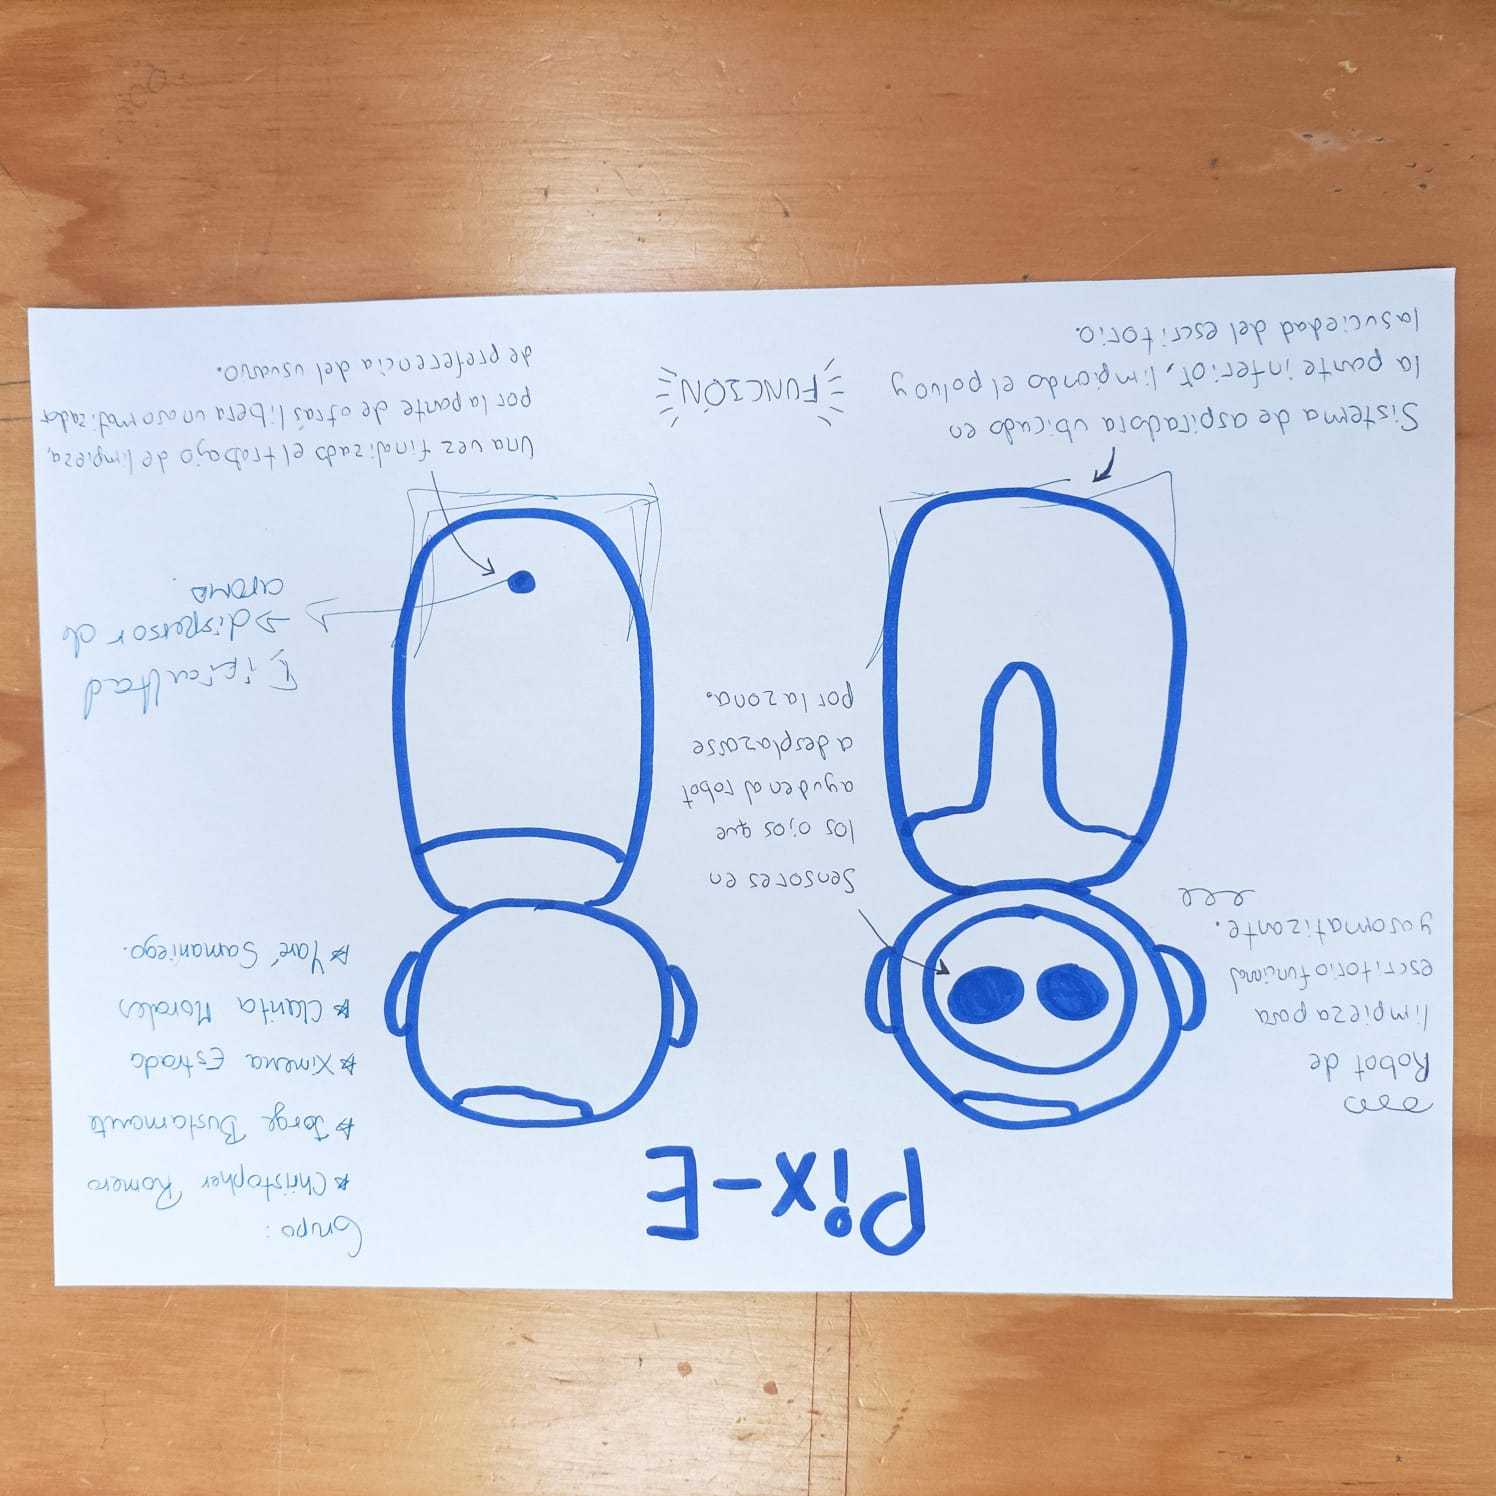 Pix-E
Grupo:
Christopher Romero
Jorge Bustamante
Ximena Estrada
Clarita Morales
Yaré Samaniego.
Robot de
limpieza para
escritorio funcional
y aromatizante.
Sensores en
los ojos que
ayuden al robot
a desplazarse
por la zona.
Dificultad
→ dispersor de
aroma.
Sistema de aspiradora ubicado en
la parte inferior, limpiando el polvo y
la suciedad del escritorio.
FUNCIÓN
Una vez finalizado el trabajo de limpieza,
por la parte de otrás libera un aromatizador
de preferencia del usuario.